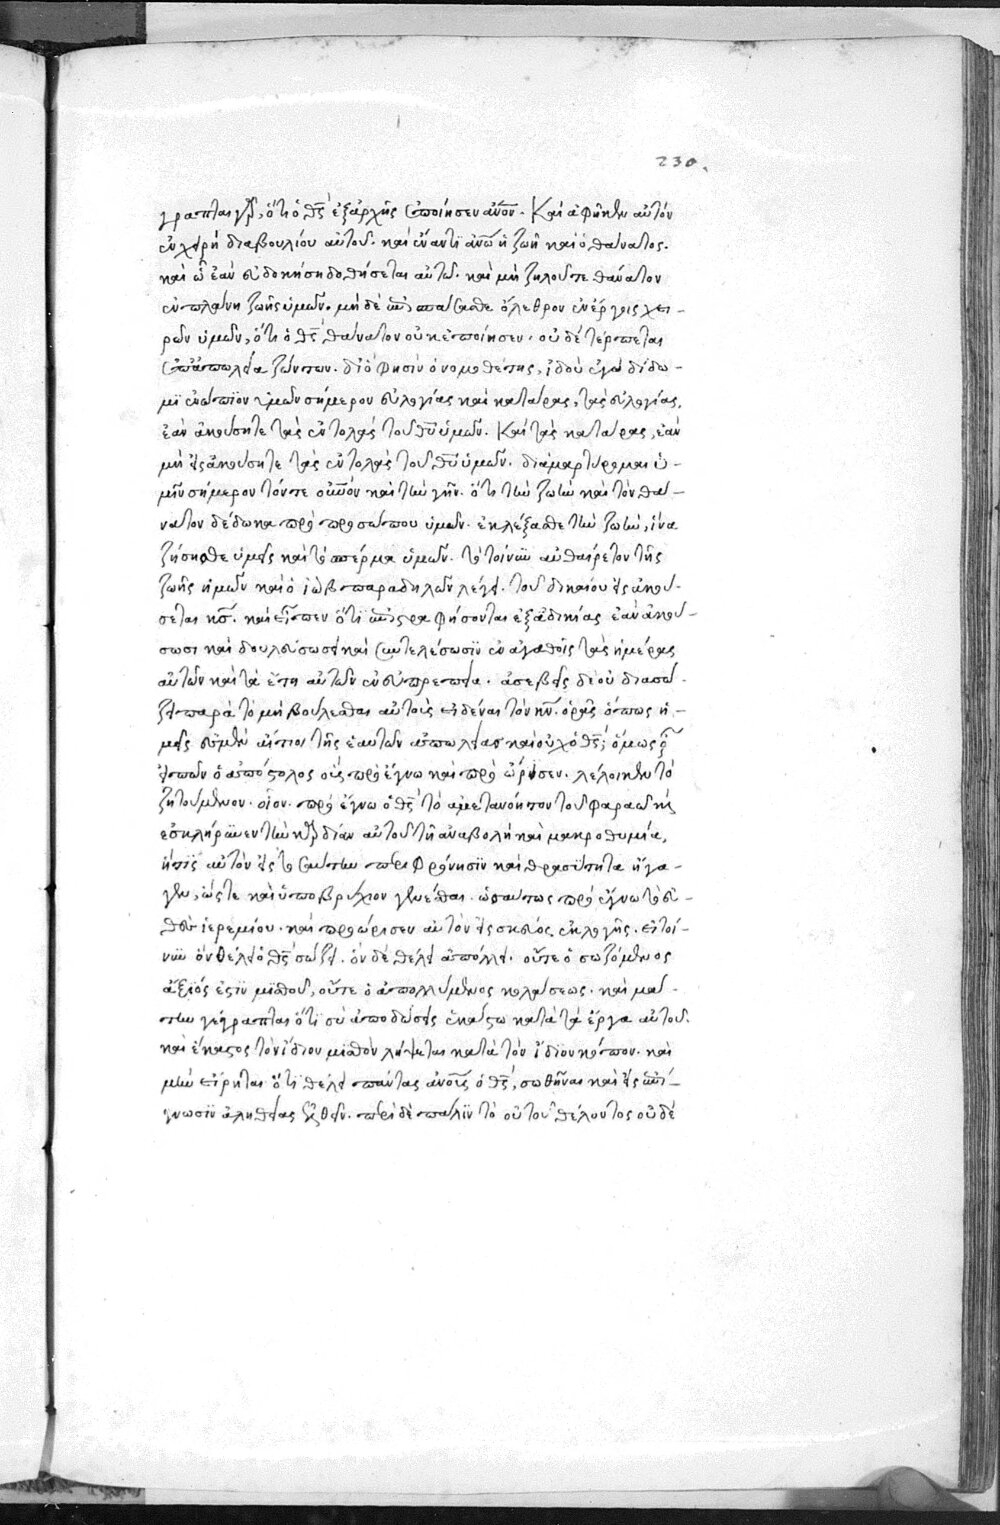 230.
γραπται γὰρ, ὅτι ὁ θς ἐξαρχῆς ἐποίησεν ἄνον. Καὶ ἀφῆκεν αὐτὸν
ἐν χειρὶ διαβουλίου αὐτοῦ. καὶ ἔναντι ἀνω ἡ ζωὴ καὶ ὁ θάνατος.
καὶ ὧ ἐὰν εὐδοκήσῃ δοθήσεται αὐτῶ. καὶ μὴ ζηλοῦτε θάνατον
ἐν πλάνη ζωῆς ὑμῶν. μὴ δὲ ἐπισπᾶσθε ὄλεθρον ἐν ἔργοις χει-
ρῶν ὑμῶν, ὅτι ὁ θς θάνατον οὐκ ἐποίησεν. οὐδὲ τέρπεται
ἐπἀπωλεία ζώντων. διό φησιν ὁ νομοθέτης, ἰδοὺ ἐγὼ δίδω-
μι ἐνώπιον ὑμῶν σήμερον εὐλογίας καὶ κατάρας, τὰς εὐλογίας,
ἐὰν ἀκούσητε τὰς ἐντολὰς τοῦ θυ ὑμῶν. Καὶ τὰς κατάρας, ἐὰν
μὴ εἰσακούσητε τὰς ἐντολὰς τοῦ θυ ὑμῶν. διαμαρτύρομαι ὑ-
μῖν σήμερον τόν τε οὐνον καὶ τὴν γῆν. ὅτι τὴν ζωὴν καὶ τὸν θά-
νατον δέδωκα πρὸ προσώπου ὑμῶν. ἐκλέξασθε τὴν ζωὴν, ἵνα
ζήσησθε ὑμεῖς καὶ τὸ σπέρμα ὑμῶν. τὸ τοίνυν αὐθαίρετον τῆς
ζωῆς ἡμῶν καὶ ὁ ἰὼβ παραδηλῶν λέγει. τοῦ δικαίου εἰσακού-
σεται κς. καὶ εἶπεν ὅτι ἐπιστραφήσονται ἐξ ἀδικίας ἐὰν ἀκού-
σωσι καὶ δουλεύσωσι καὶ συντελέσωσιν ἐν ἀγαθοῖς τὰς ἡμέρας
αὐτῶν καὶ τὰ ἔτη αὐτῶν ἐν εὐπρεπεία. ἀσεβεῖς δὲ οὐ διασώ-
ζει παρὰ τὸ μὴ βούλεσθαι αὐτοὺς εἰδέναι τὸν κν. ὁρᾶς ὅπως ἡ-
μεῖς ἐσμὲν αἴτιοι τῆς ἑαυτῶν ἀπωλείας καὶ οὐχ ὁ θς; ὅμως
εἰπὼν ὁ ἀπόστολος οὓς προέγνω καὶ προώρισεν. λέλοικεν τὸ
ζητούμενον. οἷον. προέγνω ὁ θς τὸ ἀμετανόητον τοῦ φαραὼ καὶ
ἐσκλήρυνεν τὴν καρδίαν αὐτοῦ τῆ ἀναβολῆ καὶ μακροθυμία,
ἥτις αὐτὸν εἰς τοσαύτην περιφρόνησιν καὶ θρασύτητα ἤγα-
γεν, ὥστε καὶ ὑποβρύχιον γενέσθαι. ὡσαύτως προέγνω τὸ εὐ-
θὲς ἱερεμίου. καὶ προώρισεν αὐτὸν εἰς σκεῦος ἐκλογῆς. εἰ τοί-
νυν ὃν θέλει ὁ θς σώζει. ὃν δὲ θέλει ἀπόλλει. οὔτε ὁ σωζόμενος
ἄξιός ἐστιν μισθοῦ, οὔτε ὁ ἀπολλύμενος κολάσεως. καὶ μά-
την γέγραπται ὅτι σὺ ἀποδώσεις ἑκάστω κατὰ τὰ ἔργα αὐτοῦ.
καὶ ἕκαστος τὸν ἴδιον μισθὸν λήψεται κατὰ τὸν ἴδιον κόπον. καὶ
μὴν εἴρηται ὅτι θέλει πάντας ἀνους ὁ θς, σωθῆναι καὶ εἰς ἐπί-
γνωσιν ἀληθείας ἐλθεῖν. περὶ δὲ πάλιν τὸ οὐ τοῦ θέλοντος οὐδὲ